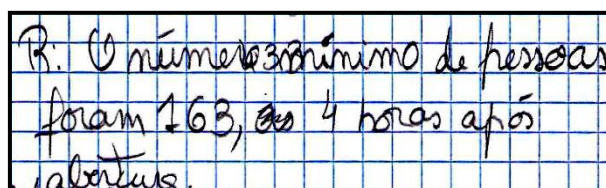 R: O número mínimo de pessoas
foram 163, as 4 horas após
abertura.